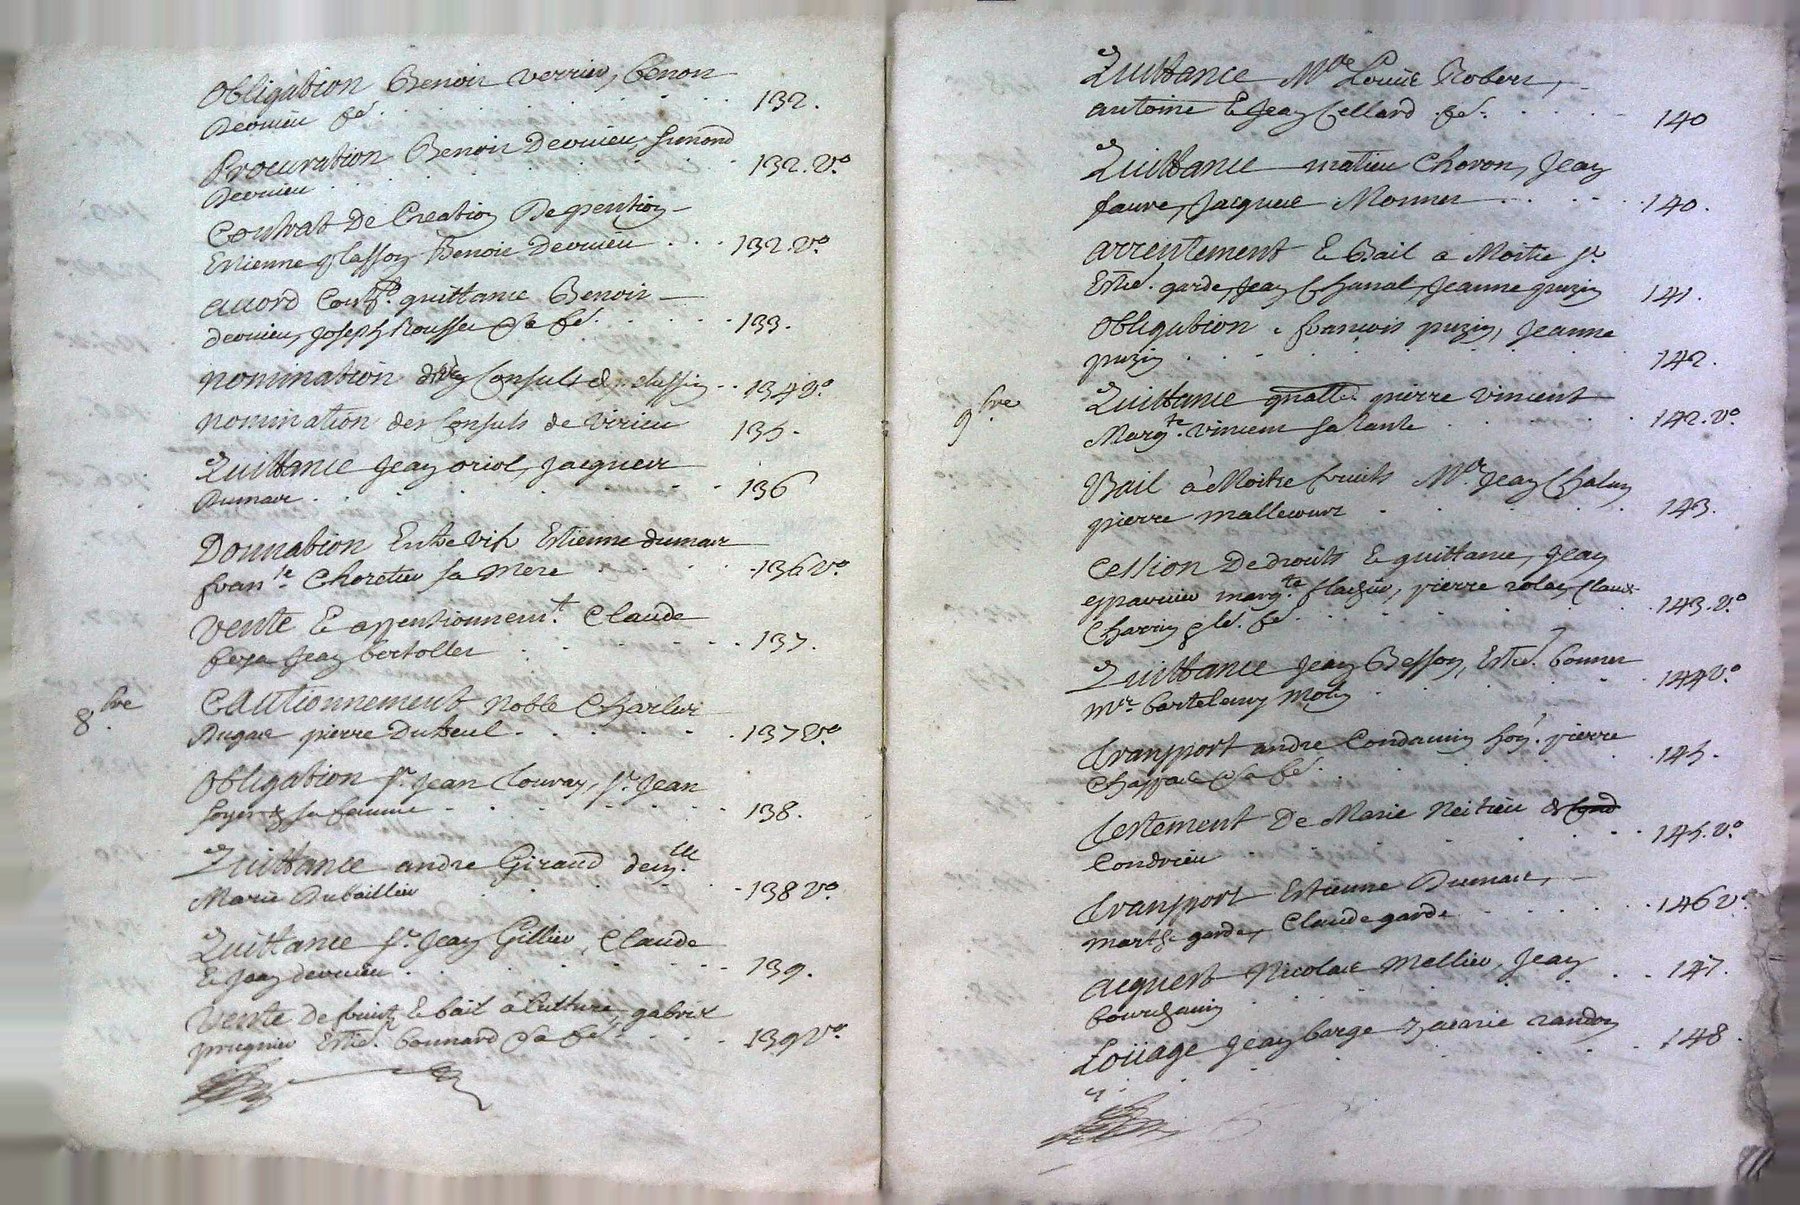 Obligation Benoit Verrier, Benoit
Devrieu fé. 132.
Procuration Benoit Devrieu, Simond
Devrieu 132. Vº
Contrat De Creation De pention
Estienne Devrieu 132. Vº
accord quittance Benoit
devrieu, Joseph Rousset & sa fé. 133.
nomination des Consuls de 134 Vº
nomination des Consuls de Virieu 135.
Quittance Jean oriol, Jacques
Dumas 136
Donnation Entre vifs Estienne dumas
fran.se Choretier sa Mere 136 Vº
Vente Et appentionnem.t Claude
Jean bertollet 137.
8.bre Cautionnement noble Charles
Dugas pierre Duteul 137 Vº
Obligation Sr. Jean Couvray, Sr. Jean
soyer & sa femme 138.
Quittance andre Giraud dem.lle
Marie Dubaillier 138 Vº
Quittance Sr. Jean Gillier, Claude
Et Jean devrieu 139.
Vente De fruits Et bail à Culture, gabriel
prugnier Estie. bonnard & sa fé 139 Vº
Quittance Mre Louïs Robert,
antoine Et Jean Cellard fé. 140
Quittance matieu Choron, Jean
faure, Jacques Monnet 140.
arrentement Et Bail a Moitie Sr.
Estie. garde, Jean Chanal, Jeanne puzin 141.
Obligation françois puzin, Jeanne
puzin 142.
9.bre Quittance pierre vincent
Marg.te vincent sa tante 142. Vº
Bail à Moitie fruits Mre Jean Chalun
pierre mallecour 143.
Cession De droits Et quittance, Jean
esparvier marg.te flachier, pierre rolan, Claude
Charrin fé. 143. Vº
Quittance Jean Besson, Estie. bonnet
Mre bartelemy Molin 144 Vº
Transport andre Condamin pierre
Chappas & sa fé 145.
Testement De Marie Neitieu &
Condrieu 145. Vº
Transport Estienne Dumas,
marthe garde, Claude garde 146 Vº
acquest Nicolas Mellier, Jean
bourchanin 147.
Loüage Jean barge Zacarie randon 148